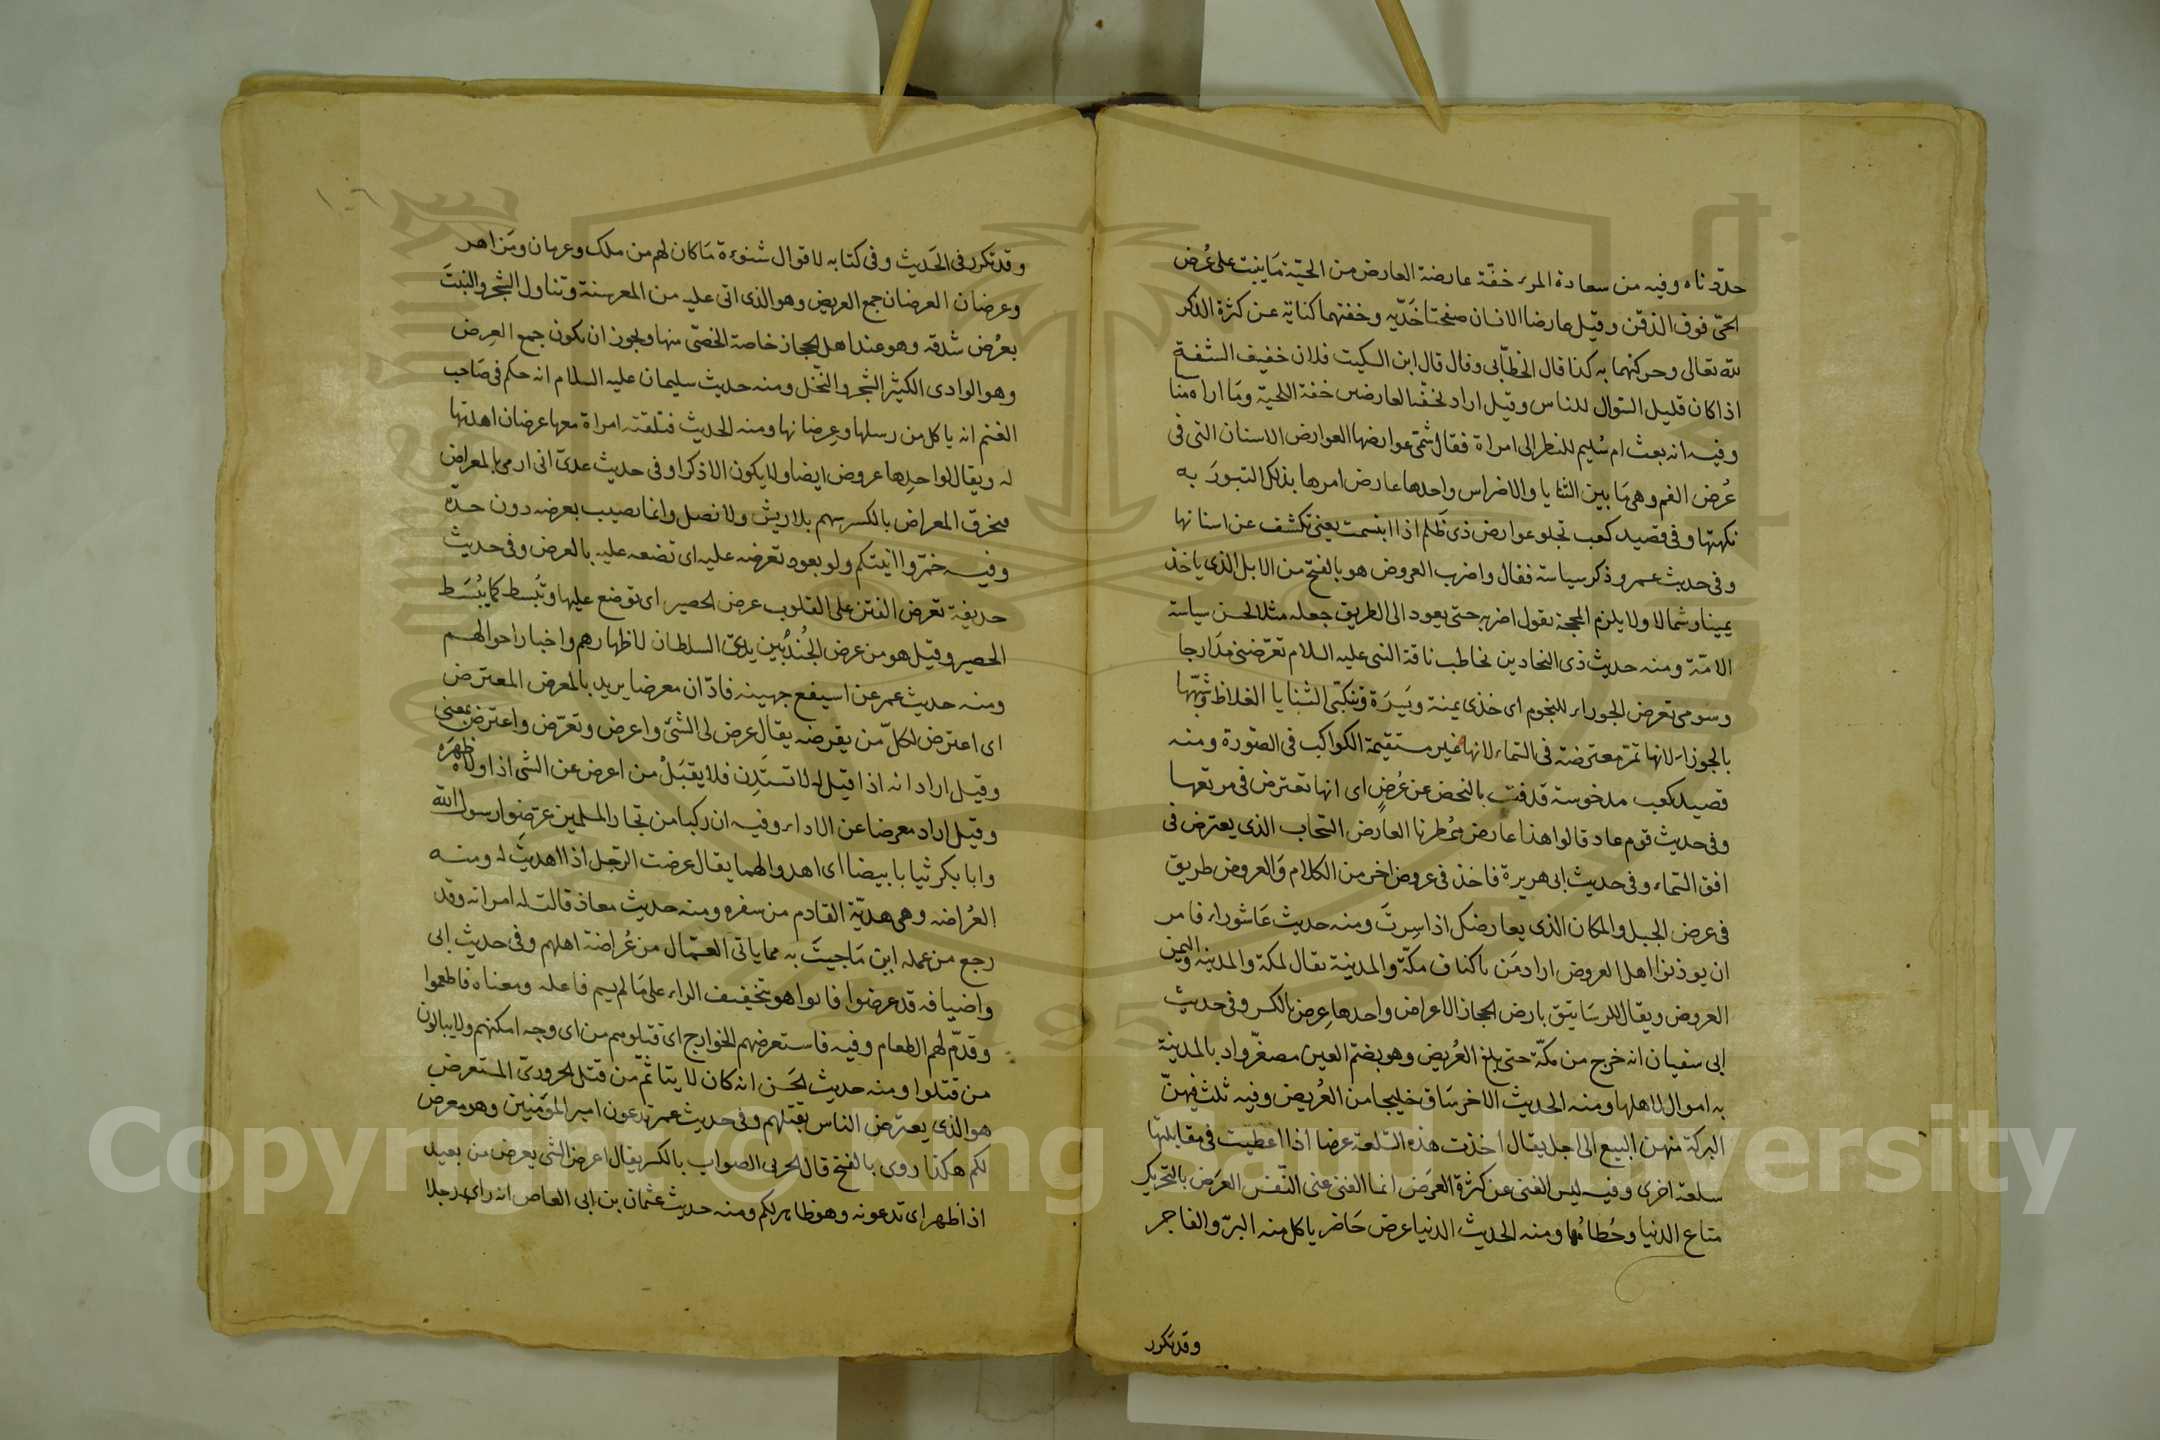 حدّدناه وفيه من سعادة المرء خفّة عارضة العارض من الحيّة مَا ينبت على عُرض
الحىّ فوق الذقن وقيل عارضا الانسان صفحتا خَدّيه وخفتهما كناية عن كثرة الذكر
لله تعالى وحركتهما به كذا قال الخطّابى وقال قال ابن السكيت فلان خفيف الشفة
اذا كان قليل السّوال للناس وقيل اراد بخفّة العارضين خفة اللحيّة ومَا اراه منا
وفيه انه بعث ام سُليم للنظر الى امراة فقال شمّى عوارضها العوارض الاسنان التى فى
عُرض الفم وهى مَا بين الثنايا والاضراس واحدها عارض امرها بذلك لتبورَ به
نكهتها وفى قصيد كعب تجلو عوارض ذى ظَلم اذا ابتسمت يعنى تكشف عن اسنانها
وفى حديث عمر وذكر سياسته فقال واضرب العروض هو بالفتح من الابل الذى ياخذ
يمينا وشمالا ولا يلزم المحجة يقول اضربه حتى يعود الى الطريق جعله مثلا لحسن سياسته
الامّة ومنه حديث ذى البجادين يخاطب ناقة النبى عليه السلام تعرّضنى مدَارجا
وسومى تعرض الجوزاء للنجوم اى خذى يمنة ويَسرَة وتنكبّى الثنايا الغلاظ وشبّهها
بالجوزاء لانها تمر معترضة فى السّماء لانها غير مستقيمة الكواكب فى الصّورة ومنه
قصيد كعب مدخوسة قذفت بالنحض عن عُرضٍ اى انها تعترض فى مرتعها
وفى حديث قوم عاد قالوا هذا عارض ممُطرنا العارض السّحاب الذى يعترض فى
افق السّماء وفى حديث ابى هريرة فاخذ فى عروض اخر من الكلام وَالعروض طريق
فى عرض الجبل والمكان الذى يعارضك اذا سِرتَ ومنه حديث عَاشوراء فامر
ان يوذنوا اهل العروض اراد مَن باكناف مكّة والمدينة يقال لمكة والمدينه واليمن
العروض ويقال للرسَاتيق بارض الحجاز الاعراض واحدها عِرض بالكسر وفى حديث
ابى سفيان انه خرج من مكّة حتى بلغ العُريض وهو بضم العين مصغّر واد بالمدينة
به اموال لاهلها ومنه الحديث الاخر سَاق خليجا من العُريض وفيه ثلث فيهنّ
البركة منهن البيع الى اجل يقال اخذت هذه السّلعة عرضا اذا اعطيت فى مقابلتها
سلعة اخرى وفيه ليس الغنى عن كثرة العَرَض انما الغنى غنى النّفس العَرَض بالتّحريك
متاع الدنيا وحُطامُها ومنه الحديث الدنيا عرض حَاضر ياكل منه البرّ والفاجر
وقد تكرر
وقد تكرر فى الحَديث وفى كتابه لاقوال شنوءة مَا كان لهم من ملك وعرمان ومَزاهر
وعرضان العرضان جمع العريض وهو الذى اتى عليه من المعز سنة وتناول الشجر والنبتَ
بعرُض شدقه وهو عند اهل الحجاز خاصة الخصّى منها ويجوز ان يكون جمع العِرض
وهو الوادى الكثير الشجر والنّخل ومنه حديث سليمان عليه السلام انه حكم فى صَاحب
الغنم انه ياكل من رسلها وعِرضانها ومنه الحديث فتلقته امراة معها عرضان اهدتها
له ويقال لواحِدها عروض ايضا ولا يكون الا ذكرا وفى حديث عدىّ انى ارمى بالمعراض
فيخرق المعراض بالكسر سهم بلا ريش ولا نصل وانما يصيب بعرضه دون حدّه
وفيه خمّروا انيتكم ولو بعود تعرضه عليه اى تضعه عليه بالعرض وفى حديث
حذيفة تعرض الفتن على القلوب عرض الحصير اى توضع عليها وتُبسط كما يُبْسَط
الحصير وقيل هو من عرض الجُند بَين يدىّ السلطان لاظهارهم واخبار احوالهم
ومنه حديث عمر عن اسيفع جهينه فادّان معرضا يريد بالمعرض المعترض
اى اعترض لكلّ من يقرضه يقال عرض لى الشئ واعرض وتعرّض واعترض بمعنى
وقيل اراد انه اذا قيل له لا تستَدِن فلا يقبَلُ من اعرض عن الشى اذا ولاّه ظهرَه
وقيل اراد معرضا عن الاداء وفيه ان ركبا من تجار المسلمين عرّضوا رسول الله
وابا بكر ثيابا بيضا اى اهدوا لهما يقال عرضت الرّجل اذا اهديت له ومنه
العُراضه وهى هديّة القادم من سفره ومنه حديث معاذ قالت له امراته وقد
رجع من عمله اين مَا جيتَ به مما ياتى العمّال من عُراضة اهلهم وفى حديث ابى
واضيافه قد عرضوا فابوا هو بتخفيف الراء على مَا لم يسم فاعله ومعناه فاطعموا
وقدّم لهم الطعام وفيه فاستعرضهم الخوارج اى قتلوهم من اى وجه امكنهم ولا يبالون
من قتلوا ومنه حديث الحَسن انه كان لا يتاثّم من قتل الحرورىّ المستعرض
هو الذى يعترض الناس بقتلهم وفى حديث عمر تدعون امير المؤمنين وهو معرض
لكم هكذا روى بالفتح قال الحربى الصواب بالكسر يقال اعرض الشى يعرض من بعيد
اذا ظهر اى تدعونه وهو ظاهر لكم ومنه حديث عثمان بن ابى العاص انه راى رجلا